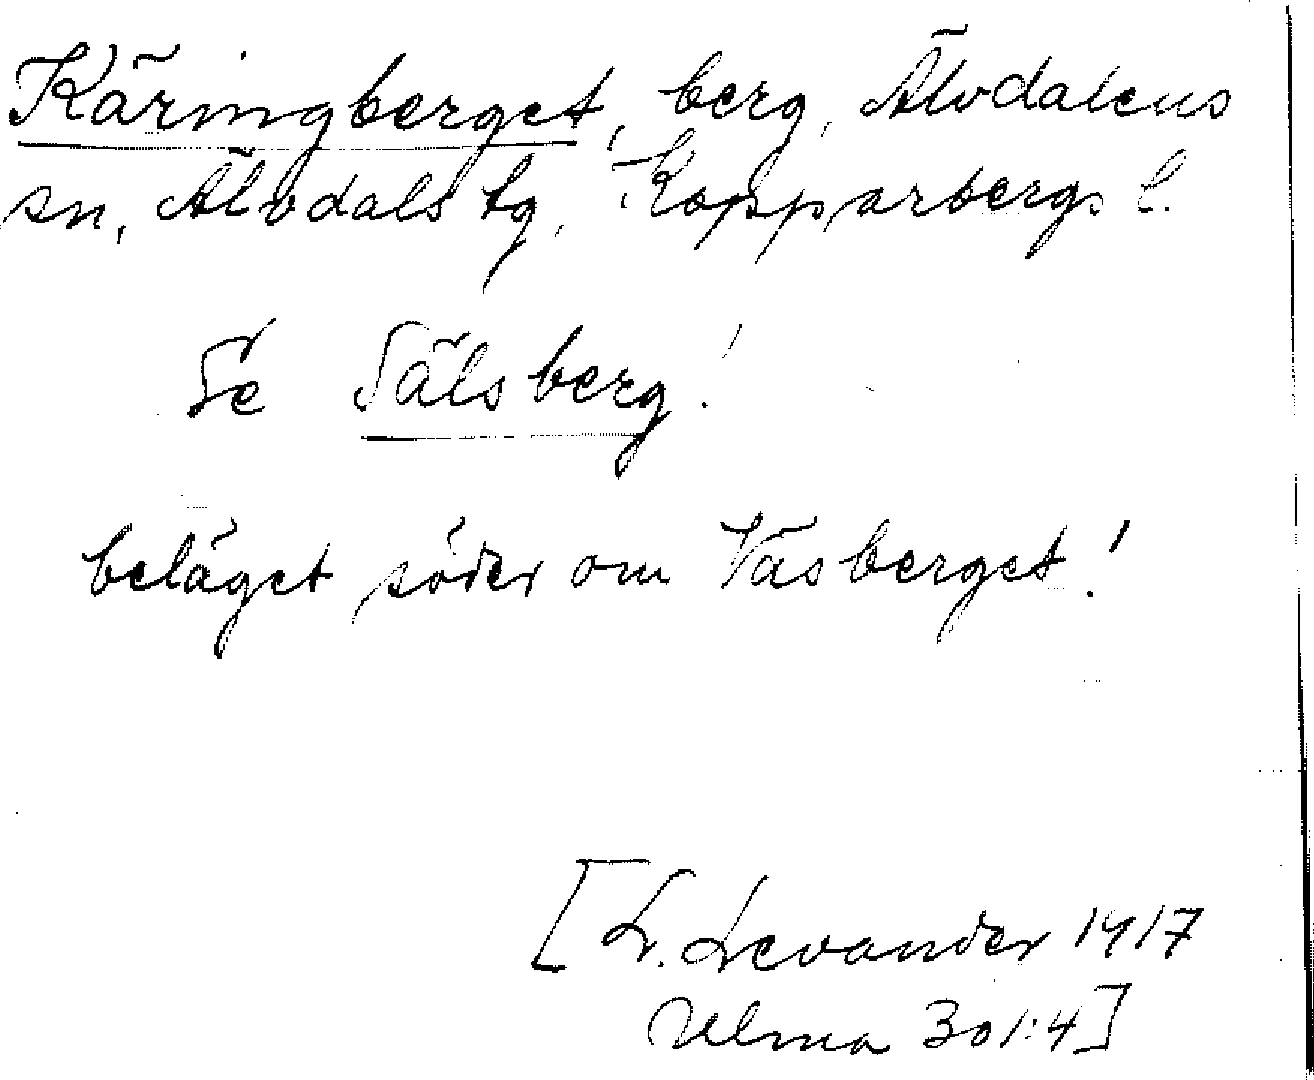 Käringberget, berg, Älvdalens
sn, Älvdals tg, Kopparbergs l.
Se Sälsberg!
beläget söder om Väsberget!
[L. Levander 1917
Ulma 301:4]